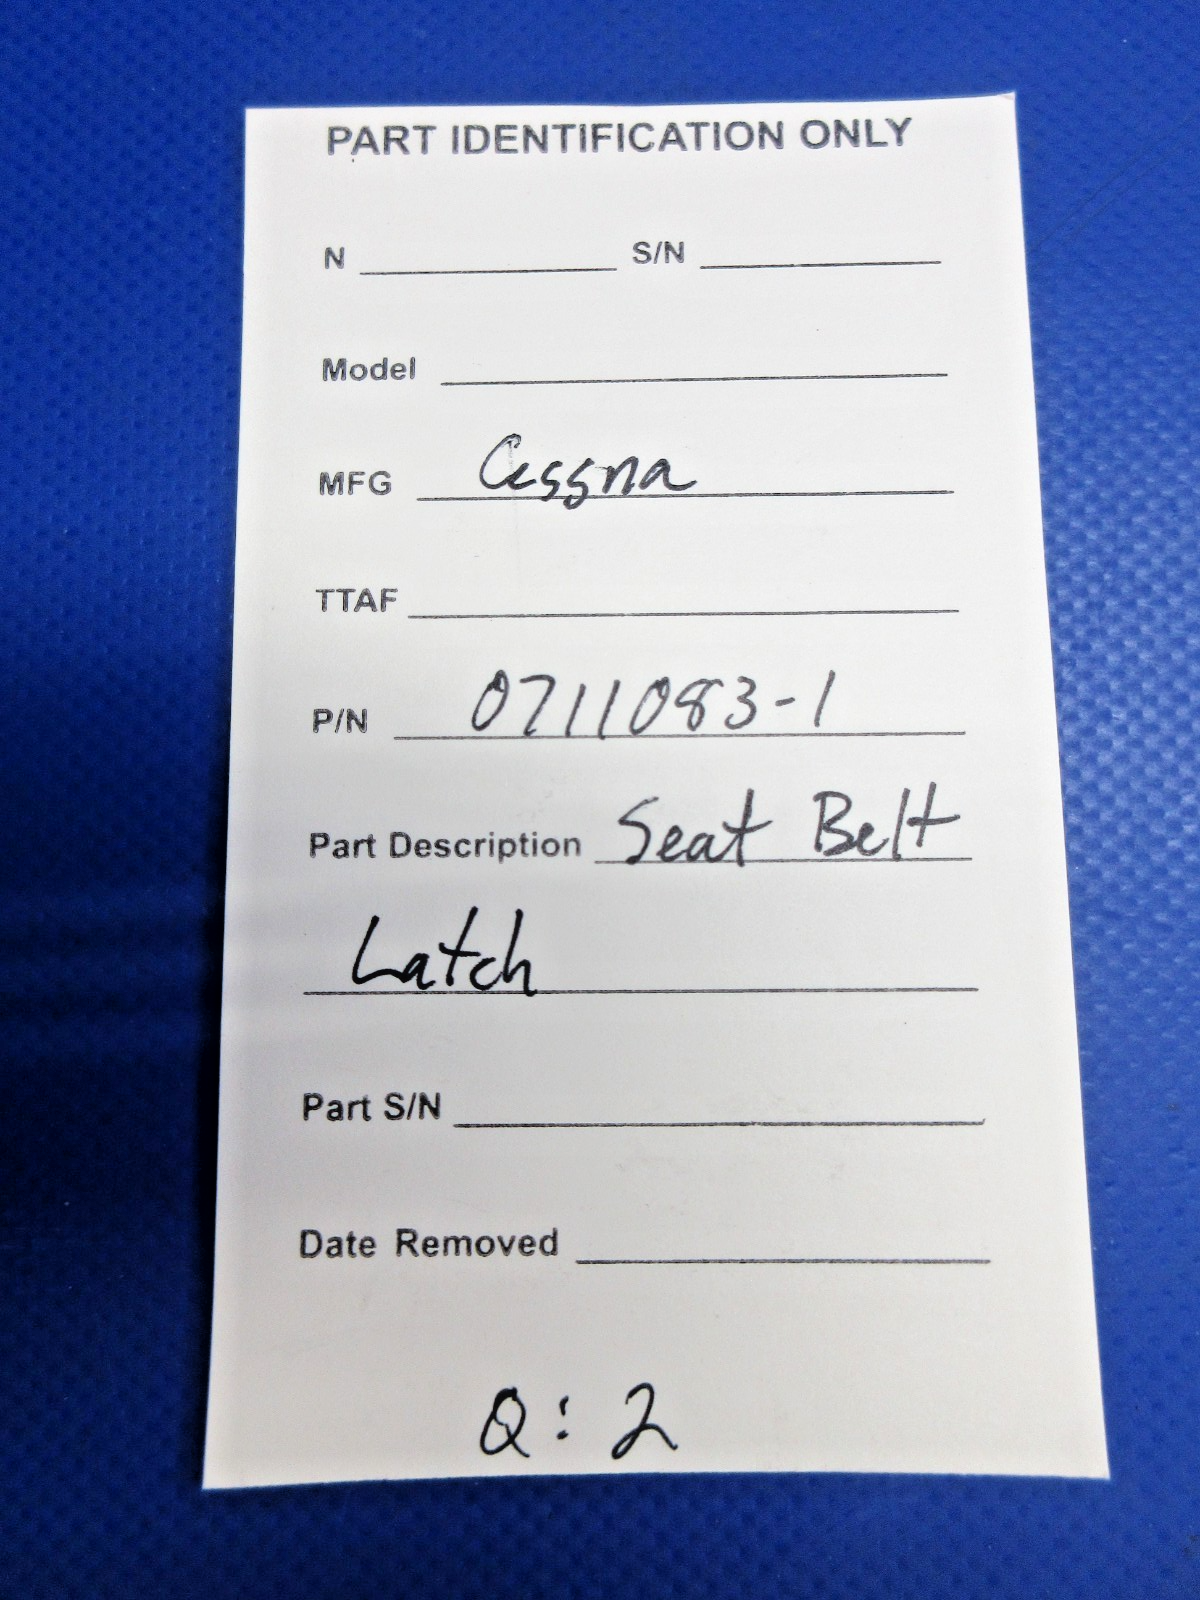 PART IDENTIFICATION ONLY
N S/N
Model
MFG Cessna
TTAF
P/N 0711083-1
Part Description Seat Belt
Latch
Part S/N
Date Removed
Q: 2